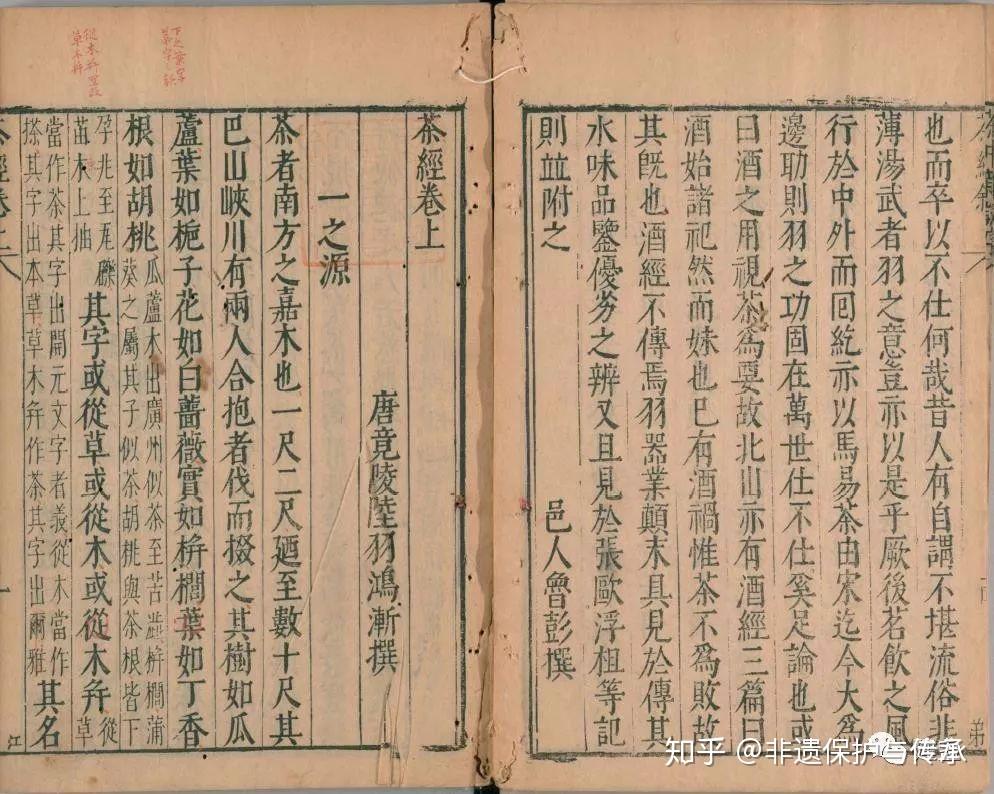 也而卒以不仕何哉昔人有自謂不堪流俗非
薄湯武者羽之意豈亦以是乎厥後茗飲之風
行於中外而回紇亦以馬易茶由宋迄今大為
邊助則羽之功固在萬世仕不仕奚足論也或
曰酒之用視茶為要故北山亦有酒經三篇曰
酒始諸祀然而妹也已有酒禍惟茶不為敗故
其旣也酒經不傳焉羽器業顛末具見於傳其
水味品鑒優劣之辨又且見於張歐浮槎等記
則並附之
邑人魯彭撰
茶經卷上
唐竟陵陸羽鴻漸撰
一之源
茶者南方之嘉木也一尺二尺廼至數十尺其
巴山峽川有兩人合抱者伐而掇之其樹如瓜
蘆葉如梔子花如白薔薇實如栟櫚葉如丁香
根如胡桃瓜蘆木出廣州似茶至苦澁栟櫚蒲葵之屬其子似茶胡桃與茶根皆下
孕兆至瓦礫苗木上抽其字或從草或從木或從木幷從草
當作茶其字出開元文字者義從木當作搽其字出本草草木幷作荼其字出爾雅其名
知乎 @非遗保护与传承